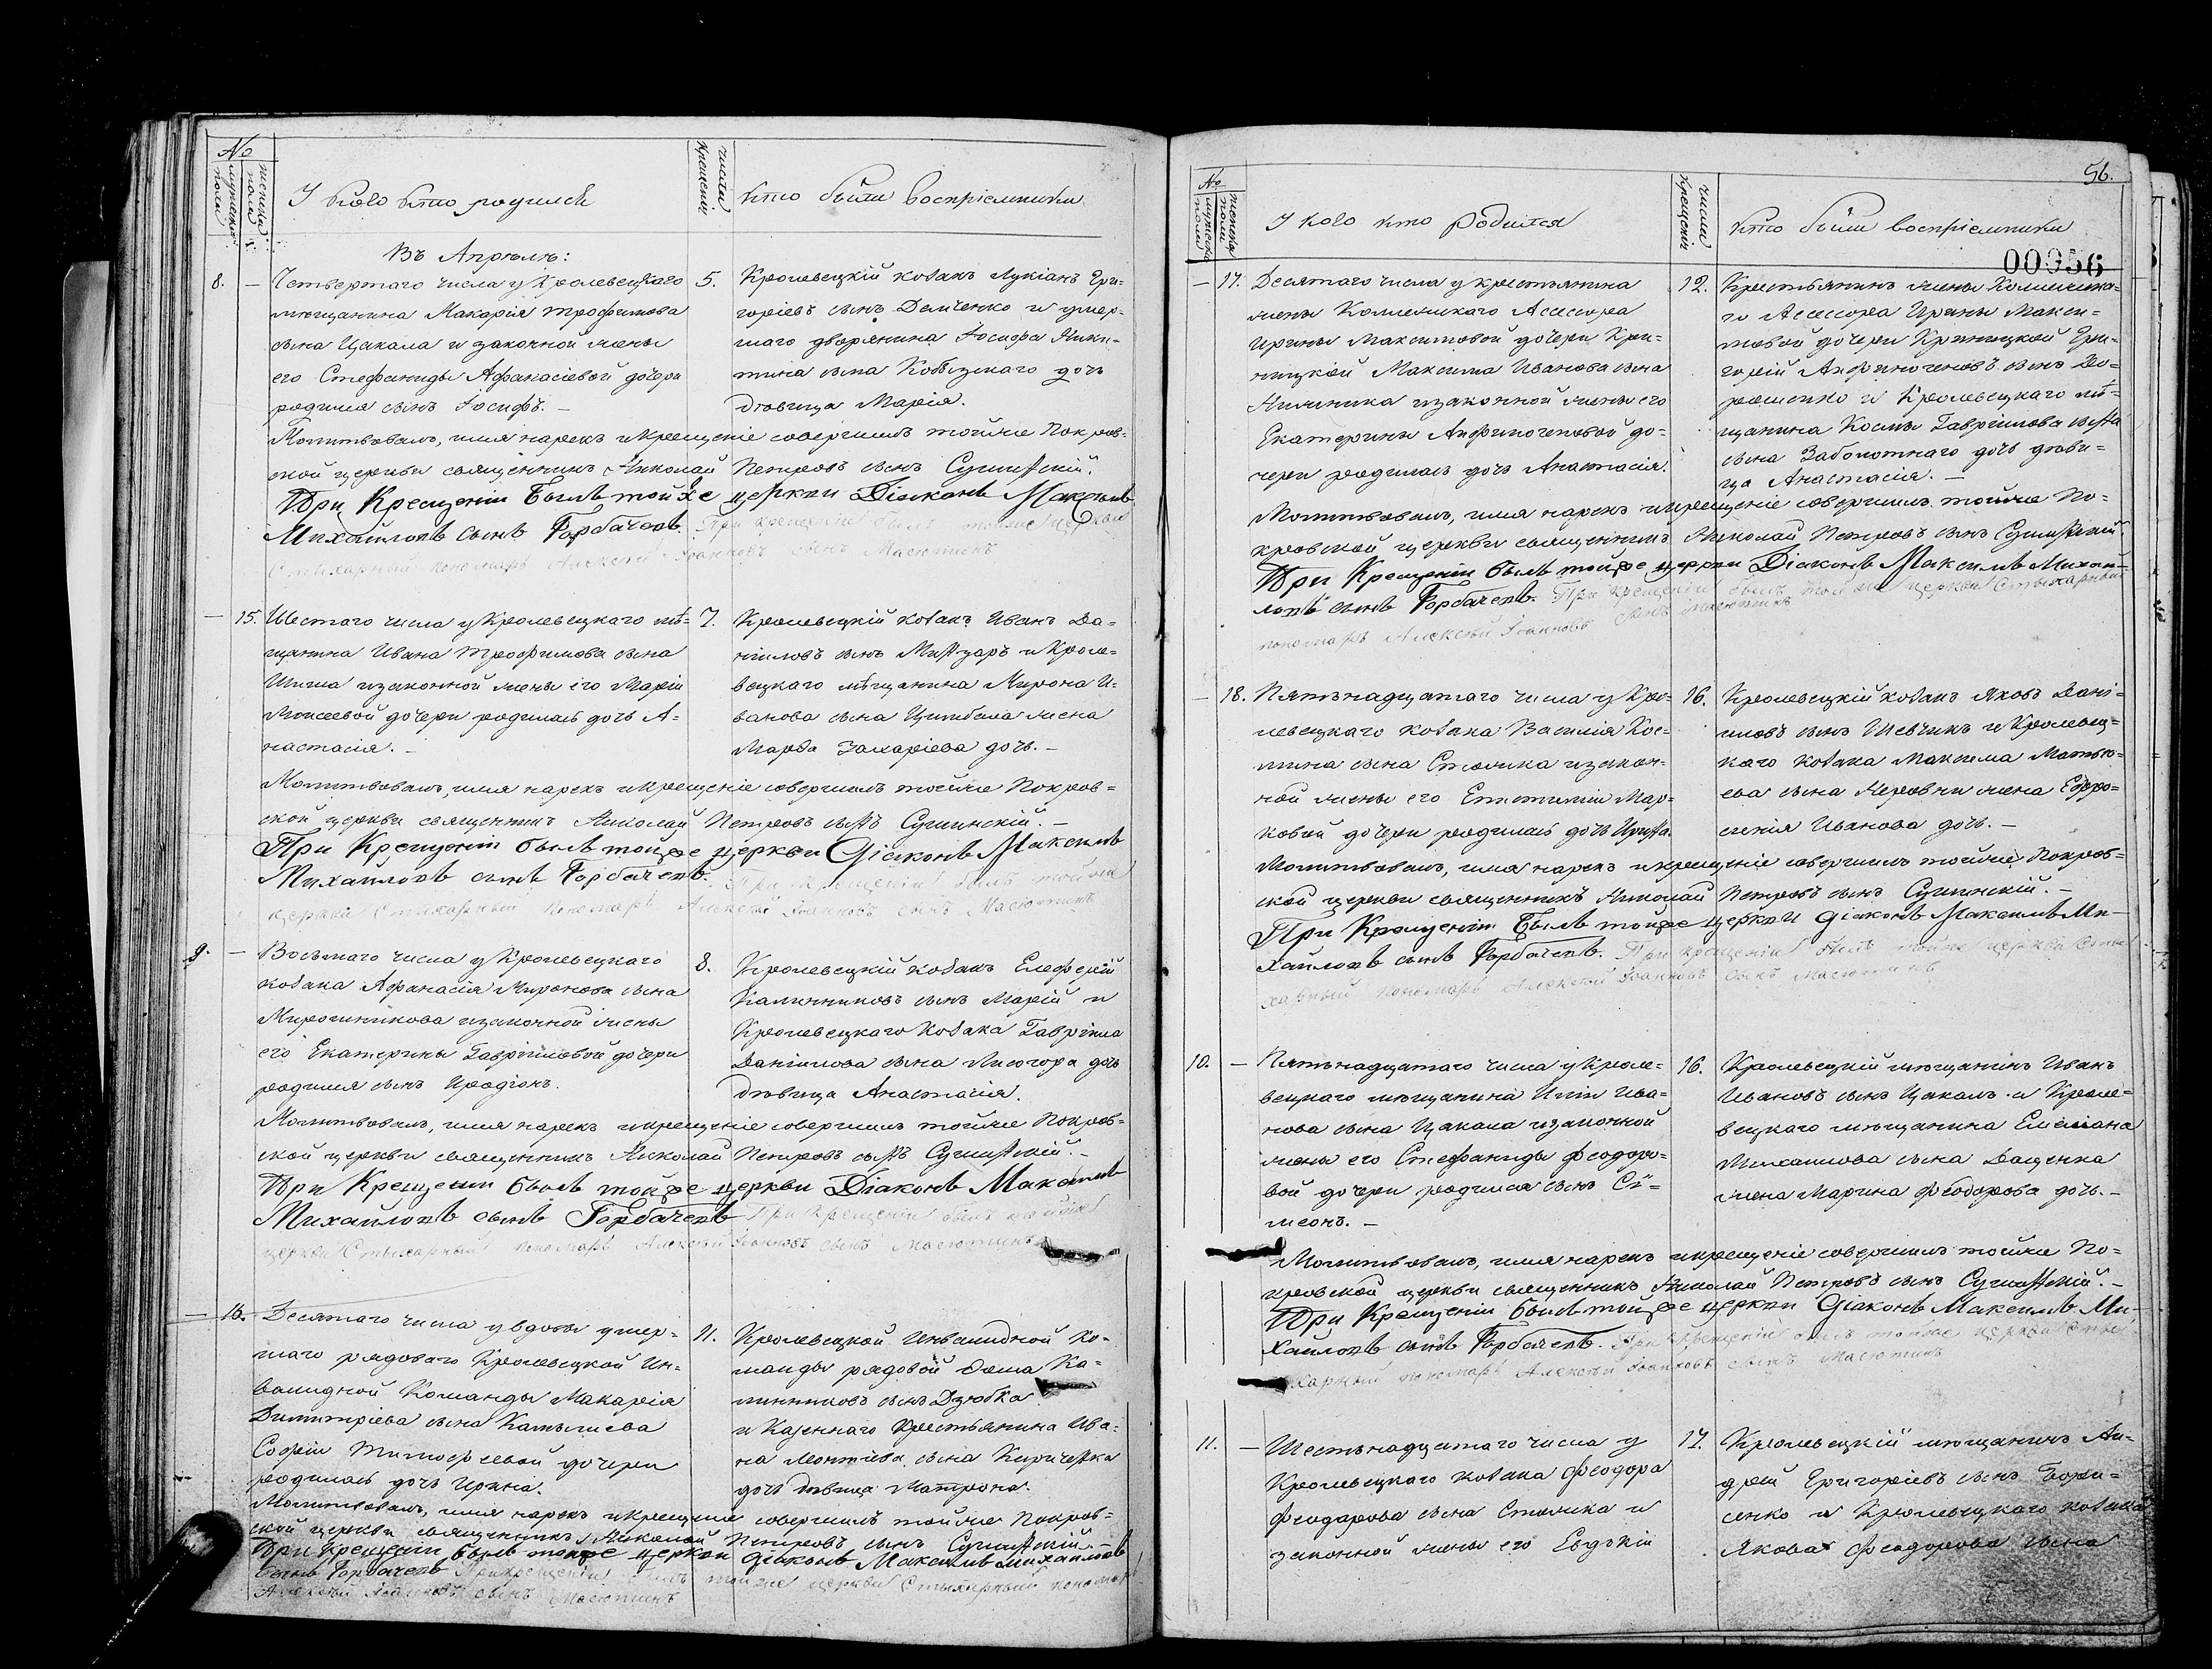 №
мужеска пола
женска пола
У кого кто родился
числа крещенія
кто были воспріемники
Въ Апрѣлѣ:
8. —
Четвертаго числа у Кролевецкаго
мѣщанина Макарія Трофимова
сына Цакала и законной жены
его Стефаниды Афанасіевой дочери
родился сынъ Іосифъ. —
5.
Кролевецкій козакъ Лукіанъ Гри-
горіевъ сынъ Демченко и умер-
шаго дворянина Іосифа Ники-
тина сына Кобызскаго дочь
дѣвица Марія.
Молитвовалъ, имя нарекъ и крещеніе совершилъ тойже Покров-
ской церкви священникъ Николай Петровъ сынъ Сушинскій.
При Крещеніи былъ тойже церкви Діаконъ Максимъ
Михайловъ сынъ Горбачевъ. При крещеніи былъ тойже церкви
Стихарный пономарь Алексѣй Іоанновъ сынъ Масютинъ
— 15.
Шестаго числа у Кролевецкаго мѣ-
щанина Ивана Трофимова сына
Шила и законной жены его Маріи
Моисеевой дочери родилась дочь А-
настасія. —
7.
Кролевецкій козакъ Иванъ Да-
ніиловъ сынъ и Кроле-
вецкаго мѣщанина Мирона И-
ванова сына Цимбала жена
Марѳа Захаріева дочь. —
Молитвовалъ, имя нарекъ и крещеніе совершилъ тойже Покров-
ской церкви священникъ Николай Петровъ сынъ Сушинскій. —
При Крещеніи былъ тойже церкви Діаконъ Максимъ
Михайловъ сынъ Горбачевъ. При крещеніи былъ тойже
церкви Стихарный пономарь Алексѣй Іоанновъ сынъ Масютинъ
9. —
Восьмаго числа у Кролевецкаго
козака Афанасія Миронова сына
Мирошникова и законной жены
его Екатерины Гавріиловой дочери
родился сынъ Иродіонъ.
8.
Кролевецкій козакъ Елеферій
Калинниковъ сынъ Марій и
Кролевецкаго козака Гавріила
Даніилова сына Лисогора дочь
дѣвица Анастасія.
Молитвовалъ, имя нарекъ и крещеніе совершилъ тойже Покров-
ской церкви священникъ Николай Петровъ сынъ Сушинскій. —
При Крещеніи былъ тойже церкви Діаконъ Максимъ
Михайловъ сынъ Горбачевъ При крещеніи былъ тойже
церкви Стихарный пономарь Алексѣй Іоанновъ сынъ Масютинъ
— 16.
Десятаго числа у вдовы умер-
шаго рядоваго Кролевецкой Ин-
валидной Команды Макарія
Димитріева сына Камышева
Софіи Тимофѣевой дочери
родилась дочь Ирина.
11.
Кролевецкой Инвалидной Ко-
манды рядовой Ѳома Ка-
линниковъ сынъ Дзюбка
и Казеннаго Крестьянина Ива-
на Леонтіева сына Кириченка
дочь дѣвица Матрона.
Молитвовалъ, имя нарекъ и крещеніе совершилъ тойже Покров-
ской церкви священникъ Николай Петровъ сынъ Сушинскій. —
При крещеніи былъ тойже церкви діаконъ Максимъ Михайловъ
сынъ Горбачевъ При крещеніи былъ тойже церкви Стихарный пономарь
Алексѣй Іоанновъ сынъ Масютинъ
56.
№
мужеска пола
женска пола
У кого кто родился
числа крещенія
кто были воспріемники
00956
— 17.
Десятаго числа у крестьянина
жены Коллежскаго Асессора
Ирины Максимовой дочери Кри-
ницкой Максима Иванова сына
и законной жены его
Екатерины Анфиногеновой до-
чери родилась дочь Анастасія.
12.
Крестьянинъ жены Коллежска-
го Асессора Ирины Макси-
мовой дочери Криницкой Гри-
горій Анфиногеновъ сынъ До-
рошенко и Кролевецкаго мѣ-
щанина Космы Гавріилова сына
сына Заболотнаго дочь дѣви-
ца Анастасія. —
Молитвовалъ, имя нарекъ и крещеніе совершилъ тойже По-
кровской церкви священникъ Николай Петровъ сынъ Сушинскій.
При Крещеніи былъ тойже церкви Діаконъ Максимъ Михай-
ловъ сынъ Горбачевъ. При крещеніи былъ тойже церкви Стихарный
пономарь Алексѣй Іоанновъ сынъ Масютинъ
— 18.
Пятьнадцатаго числа у Кро-
левецкаго козака Василія Кос-
мина сына Столика и закон-
ной жены его Епистиміи Мар-
ковой дочери родилась дочь Ирина.
16.
Кролевецкій козакъ Яковъ Дані-
иловъ сынъ Шевчикъ и Кролевец-
каго козака Максима Матвѣ-
ева сына жена Евфро-
синія Иванова дочь. —
Молитвовалъ, имя нарекъ и крещеніе совершилъ тойже Покров-
ской церкви священникъ Николай Петровъ сынъ Сушинскій. —
При Крещеніи былъ тойже церкви Діаконъ Максимъ Ми-
хайловъ сынъ Горбачевъ. При крещеніи былъ тойже церкви Сти-
харный пономарь Алексѣй Іоанновъ сынъ Масютинъ
10. —
Пятьнадцатаго числа у Кроле-
вецкаго мѣщанина Иліи Ива-
нова сына Цакала и законной
жены его Стефаниды Феодоро-
вой дочери родился сынъ Си-
меонъ. —
16.
Кролевецкій мѣщанинъ Иванъ
Ивановъ сынъ Цакалъ и Кроле-
вецкаго мѣщанина Емеліана
Михаилова сына Даценка
жена Марина Феодорова дочь. —
Молитвовалъ, имя нарекъ и крещеніе совершилъ тойже По-
кровской церкви священникъ Николай Петровъ сынъ Сушинскій. —
При Крещеніи былъ тойже церкви Діаконъ Максимъ Ми-
хайловъ сынъ Горбачевъ. При крещеніи былъ тойже церкви Сти-
харный пономарь Алексѣй Іоанновъ сынъ Масютинъ
11. —
Шестьнадцатаго числа у
Кролевецкаго козака Феодора
Феодорова сына Столика и
законной жены его Евдокіи
17.
Кролевецкій мѣщанинъ Ан-
дрей Григоріевъ сынъ Бори-
сенко и Кролевецкаго козака
Якова Феодорова сына